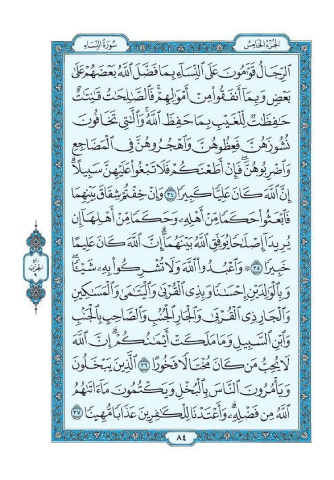 سُورَةُ النِّسَاءِ الجُزْءُ الخَامِسُ
ٱلرِّجَالُ قَوَّٰمُونَ عَلَى ٱلنِّسَآءِ بِمَا فَضَّلَ ٱللَّهُ بَعْضَهُمْ عَلَىٰ
بَعْضٍ وَبِمَآ أَنفَقُوا۟ مِنْ أَمْوَٰلِهِمْ فَٱلصَّٰلِحَٰتُ قَٰنِتَٰتٌ
حَٰفِظَٰتٌ لِّلْغَيْبِ بِمَا حَفِظَ ٱللَّهُ وَٱلَّٰتِى تَخَافُونَ
نُشُوزَهُنَّ فَعِظُوهُنَّ وَٱهْجُرُوهُنَّ فِى ٱلْمَضَاجِعِ
وَٱضْرِبُوهُنَّ فَإِنْ أَطَعْنَكُمْ فَلَا تَبْغُوا۟ عَلَيْهِنَّ سَبِيلًا
إِنَّ ٱللَّهَ كَانَ عَلِيًّا كَبِيرًا ٣٤ وَإِنْ خِفْتُمْ شِقَاقَ بَيْنِهِمَا
فَٱبْعَثُوا۟ حَكَمًا مِّنْ أَهْلِهِۦ وَحَكَمًا مِّنْ أَهْلِهَآ إِن
يُرِيدَآ إِصْلَٰحًا يُوَفِّقِ ٱللَّهُ بَيْنَهُمَآ إِنَّ ٱللَّهَ كَانَ عَلِيمًا
خَبِيرًا ٣٥ ۞ وَٱعْبُدُوا۟ ٱللَّهَ وَلَا تُشْرِكُوا۟ بِهِۦ شَيْـًٔا
وَبِٱلْوَٰلِدَيْنِ إِحْسَٰنًا وَبِذِى ٱلْقُرْبَىٰ وَٱلْيَتَٰمَىٰ وَٱلْمَسَٰكِينِ
وَٱلْجَارِ ذِى ٱلْقُرْبَىٰ وَٱلْجَارِ ٱلْجُنُبِ وَٱلصَّاحِبِ بِٱلْجَنۢبِ
وَٱبْنِ ٱلسَّبِيلِ وَمَا مَلَكَتْ أَيْمَٰنُكُمْ إِنَّ ٱللَّهَ
لَا يُحِبُّ مَن كَانَ مُخْتَالًا فَخُورًا ٣٦ ٱلَّذِينَ يَبْخَلُونَ
وَيَأْمُرُونَ ٱلنَّاسَ بِٱلْبُخْلِ وَيَكْتُمُونَ مَآ ءَاتَىٰهُمُ
ٱللَّهُ مِن فَضْلِهِۦ وَأَعْتَدْنَا لِلْكَٰفِرِينَ عَذَابًا مُّهِينًا ٣٧
٨٤